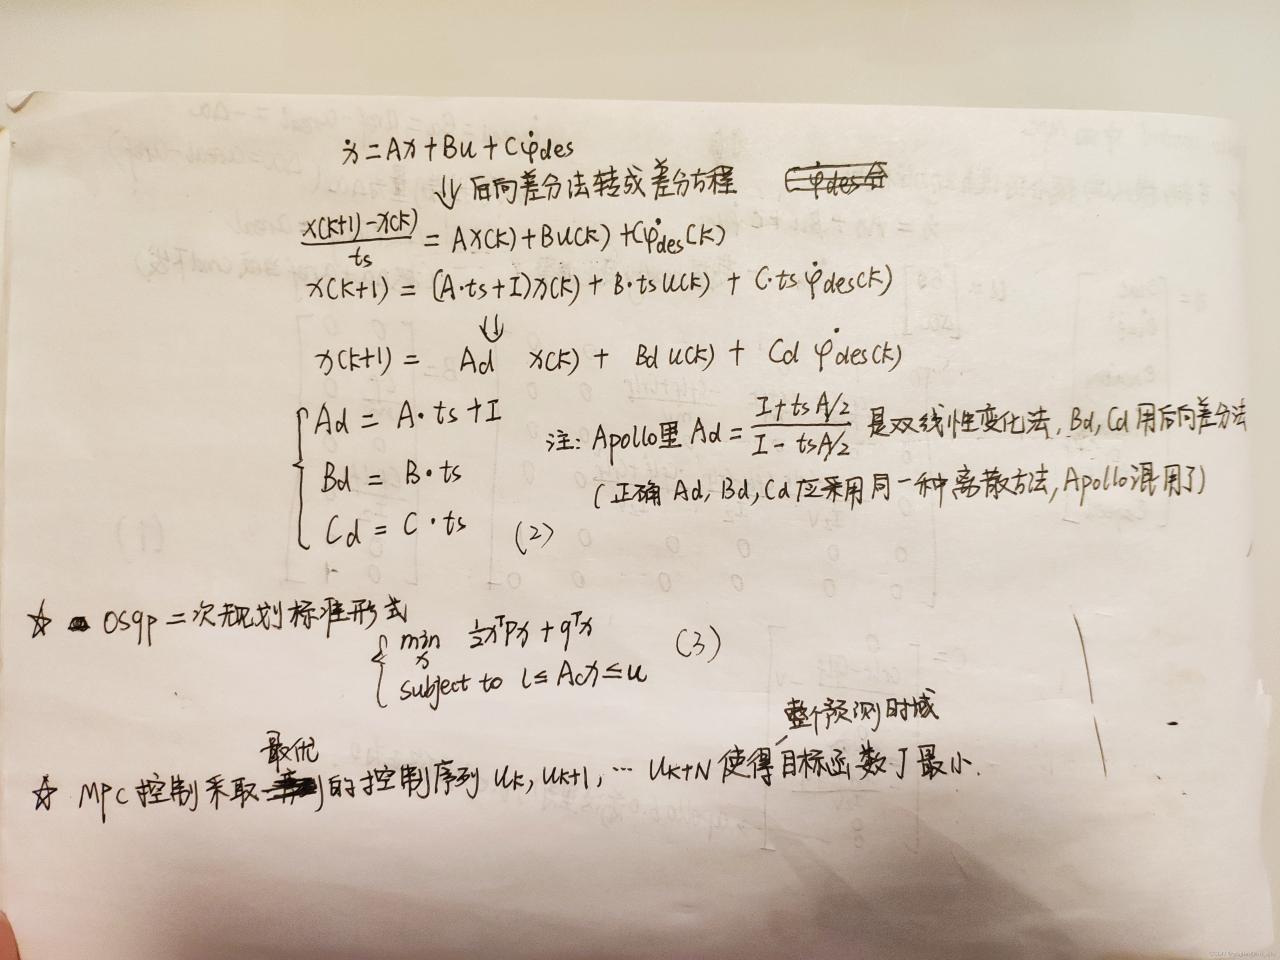 ẋ = Ax + Bu + Cφ̇des
⇓ 后向差分法转成差分方程
(x(k+1) - x(k)) / ts = Ax(k) + Bu(k) + Cφ̇des(k)
x(k+1) = (A·ts+I)x(k) + B·ts u(k) + C·ts φ̇des(k)
⇓
x(k+1) = Ad x(k) + Bd u(k) + Cd φ̇des(k)
{ Ad = A·ts + I
Bd = B·ts
Cd = C·ts (2)
注: Apollo里 Ad = (I + tsA/2) / (I - tsA/2) 是双线性变化法, Bd, Cd 用后向差分法
(正确 Ad, Bd, Cd 应采用同一种离散方法, Apollo混用了)
☆ osqp 二次规划标准形式
{ min x ½xᵀPx + qᵀx
subject to l ≤ Acx ≤ u (3)
整个预测时域
最优
☆ MPC 控制采取的控制序列 uk, uk+1, … uk+N 使得目标函数J最小.